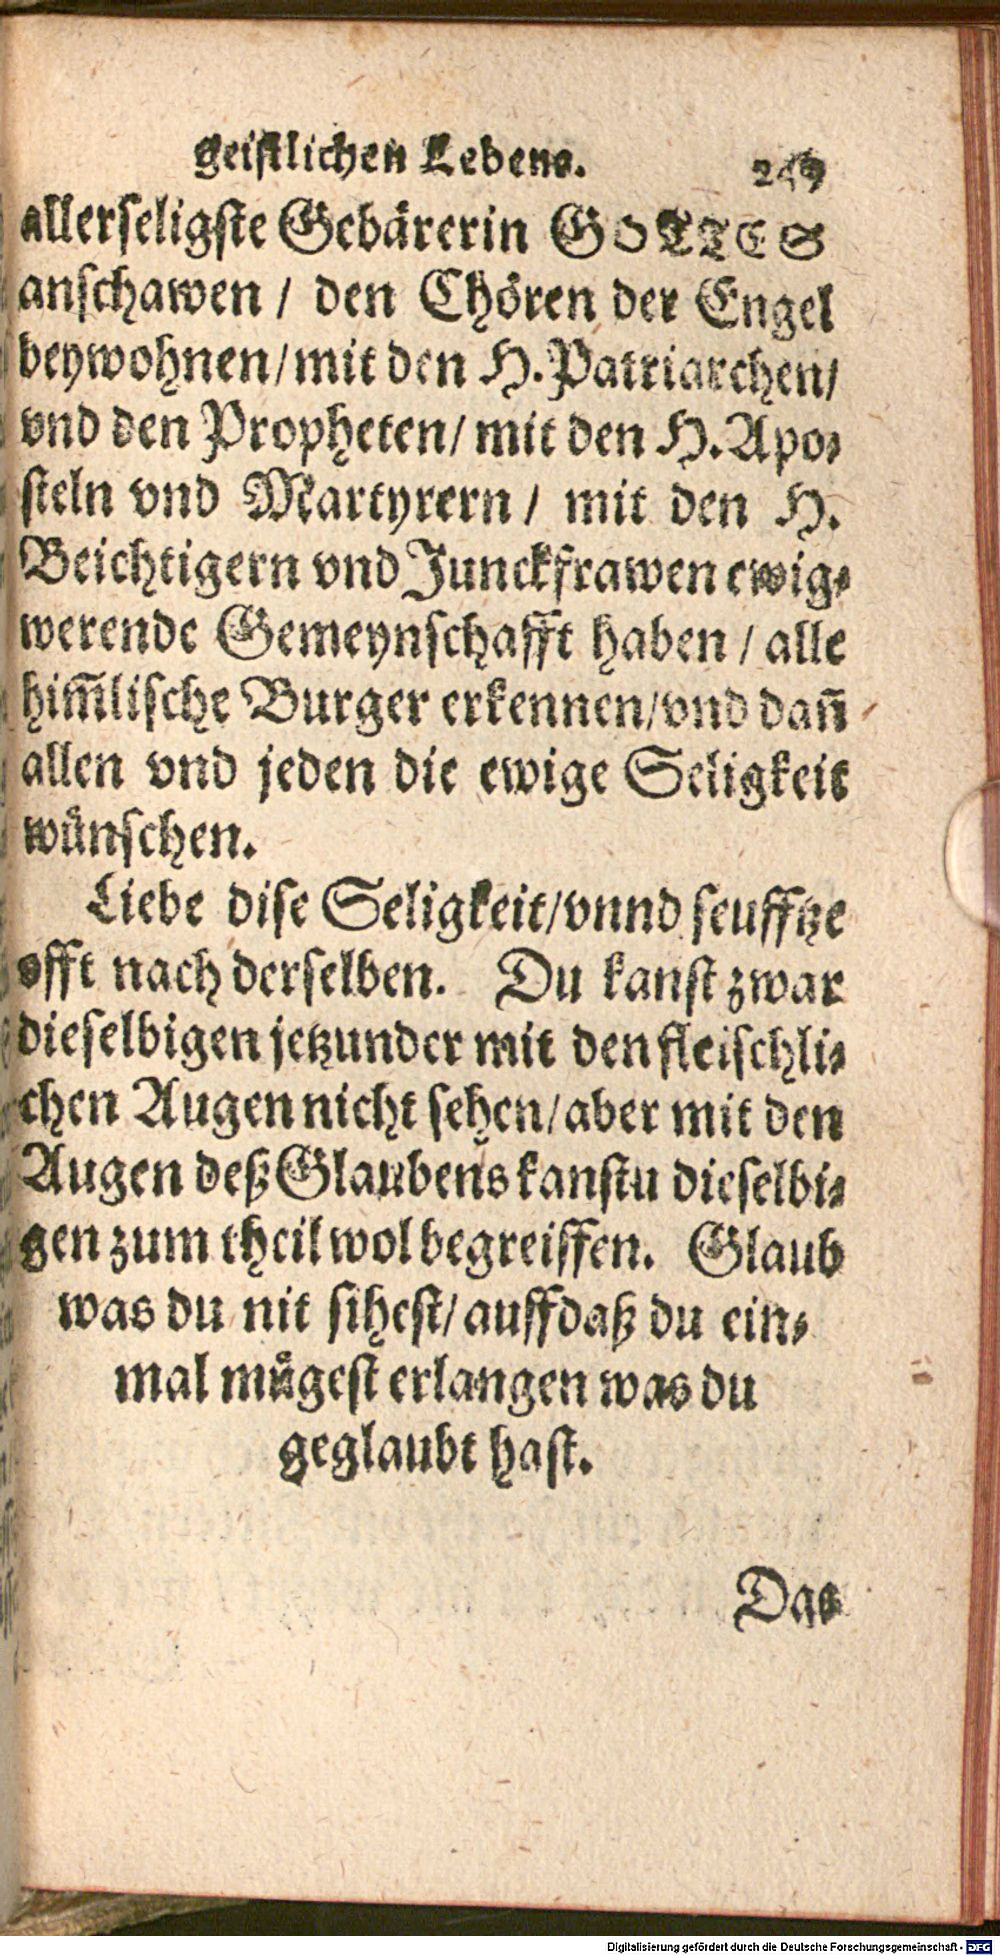 geistlichen Lebens.
allerseligste Gebärerin GOTTES
anschawen / den Chören der Engel
beywohnen/mit den H. Patriarchen/
vnd den Propheten/ mit den H. Apo-
steln vnd Martyrern / mit den H.
Beichtigern vnd Junckfrawen ewig-
werende Gemeynschafft haben / alle
him̃lische Burger erkennen/vnd dan̄
allen vnd jeden die ewige Seligkeit
wünschen.
Liebe dise Seligkeit/vnnd seufftze
offt nach derselben. Du kanst zwar
dieselbigen jetzunder mit den fleischli-
chen Augen nicht sehen/aber mit den
Augen deß Glaubens kanstu dieselbi-
gen zum theil wol begreiffen. Glaub
was du nit sihest/auffdaß du ein-
mal mügest erlangen was du
geglaubt hast.
Das
Digitalisierung gefördert durch die Deutsche Forschungsgemeinschaft - DFG